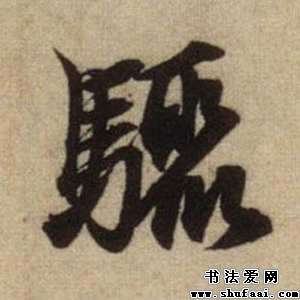 驟
书法爱网
www.shufaai.com